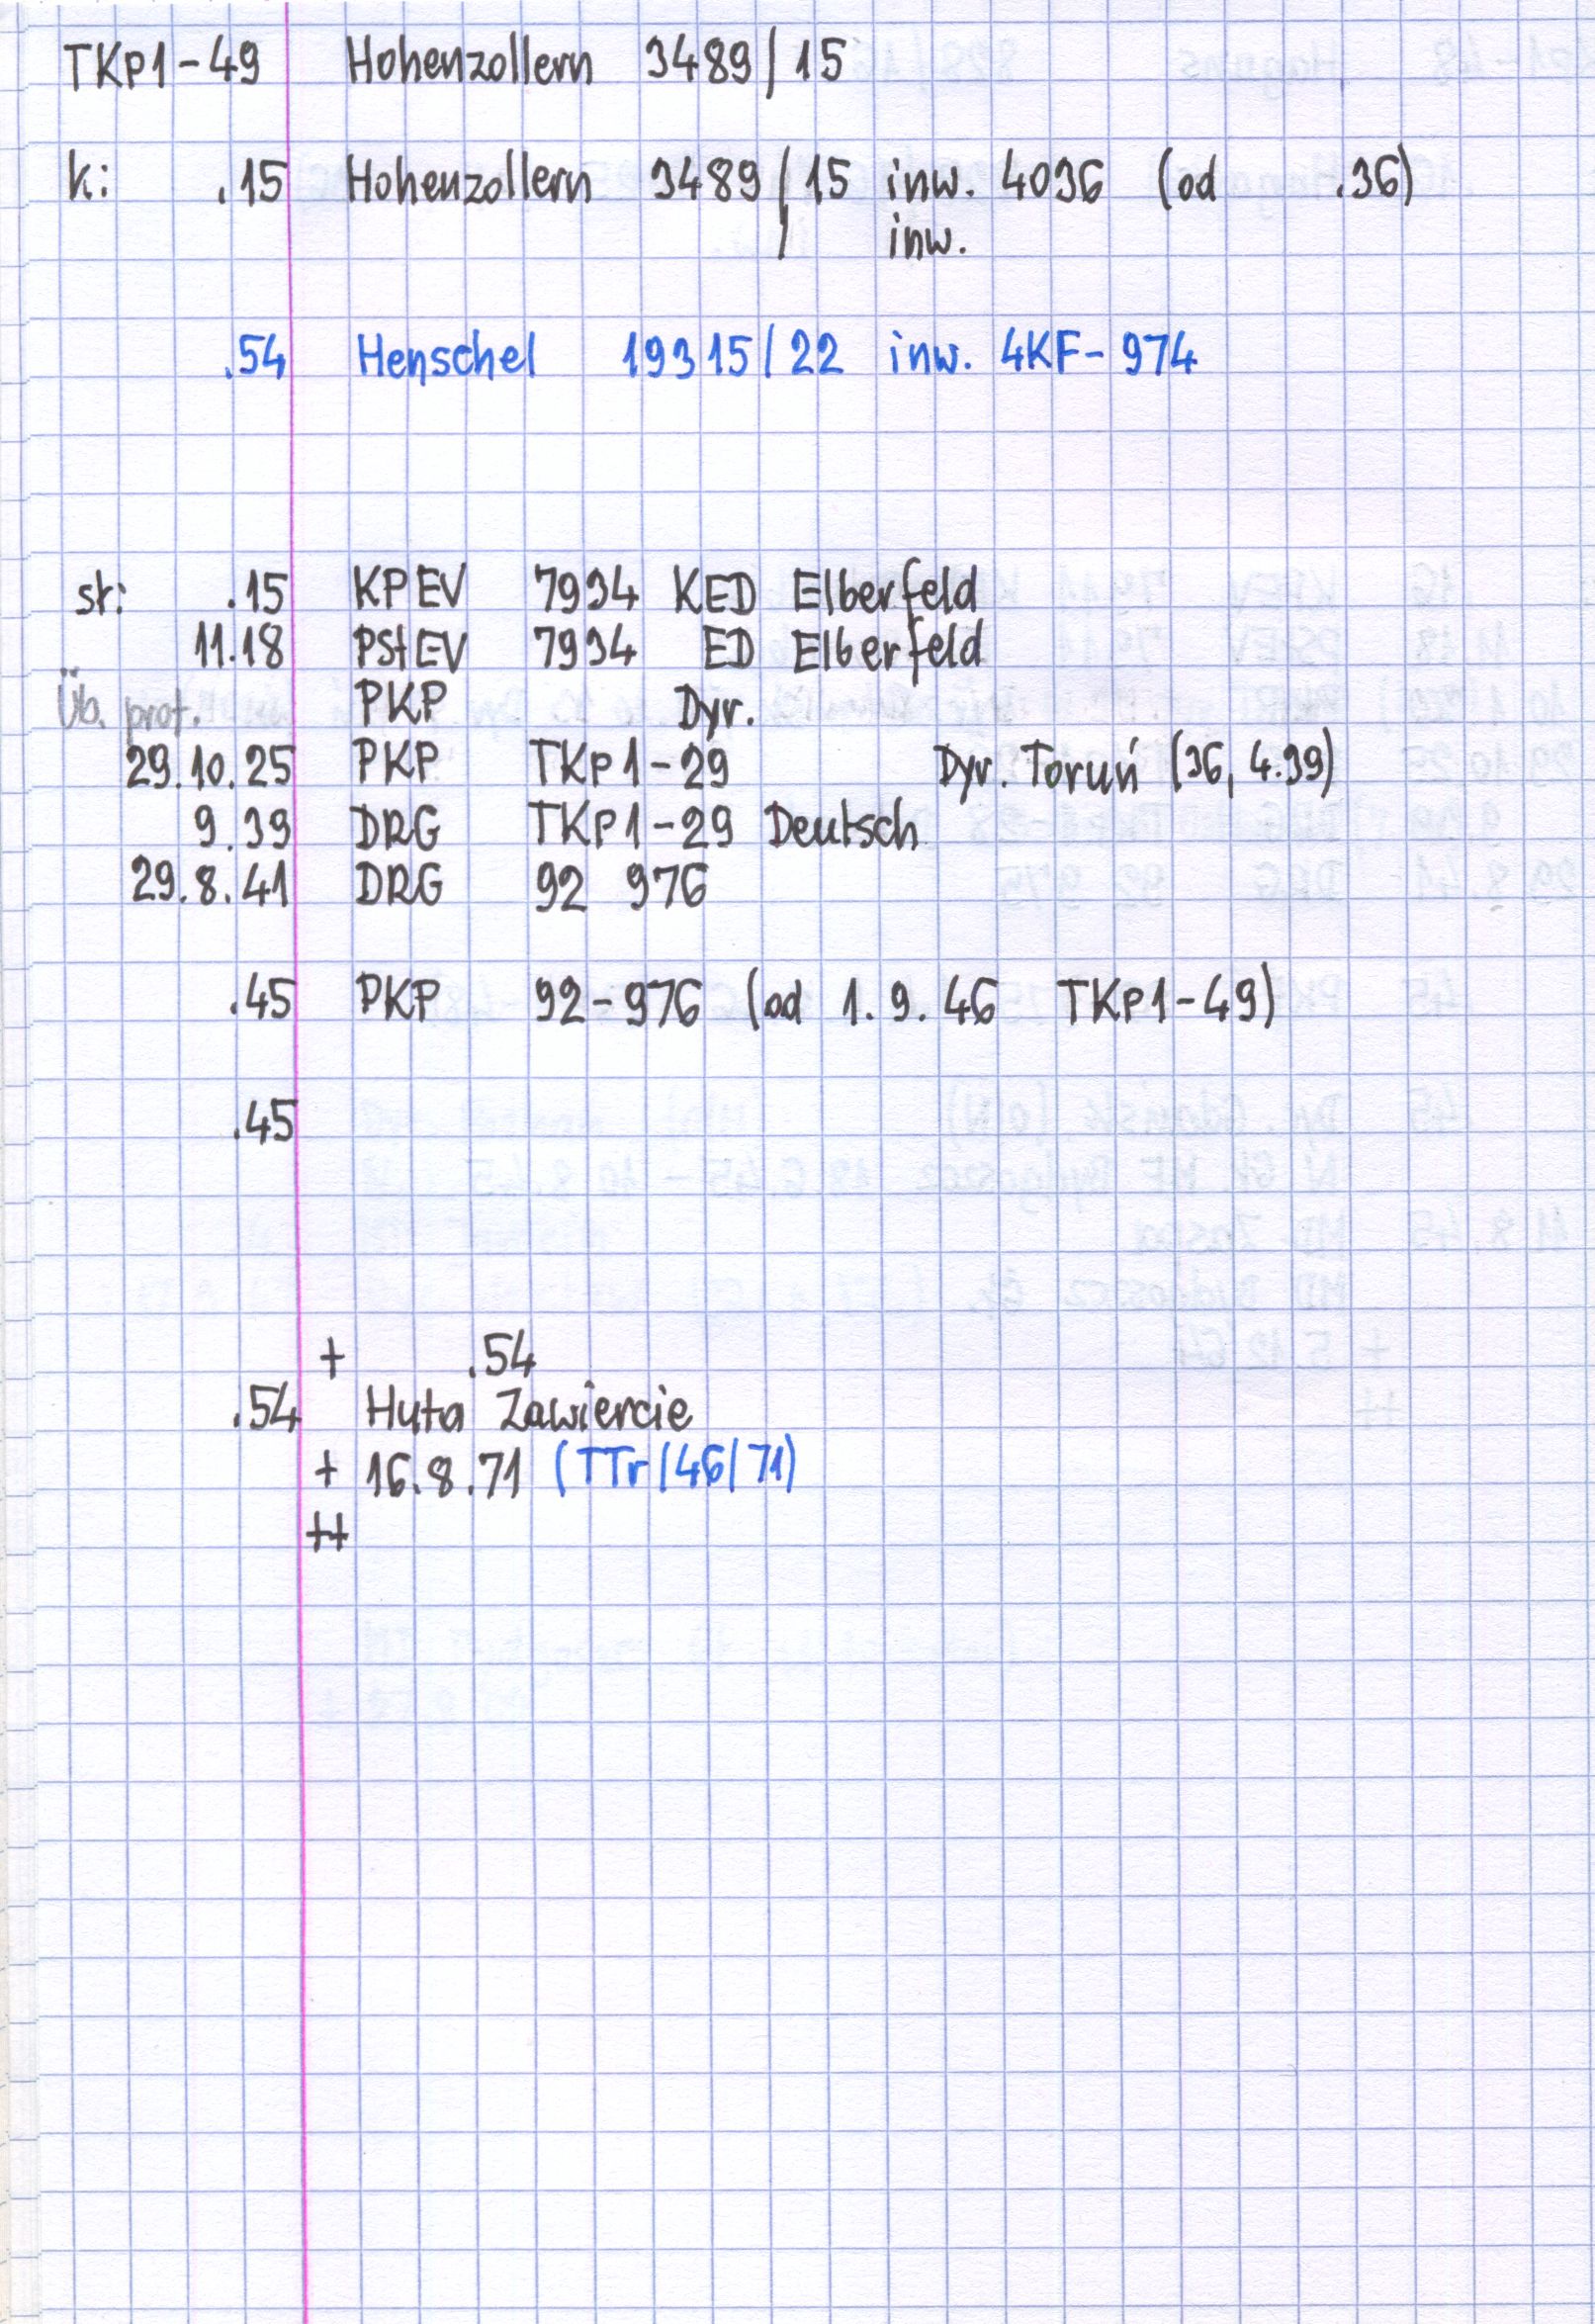 TKp1-49 Hohenzollern 3489/15
k: .15 Hohenzollern 3489/15 inw. 4036 (od .36)
/ inw.
.54 Henschel 19315/22 inw. 4KF-974
st: .15 KPEV 7934 KED Elberfeld
11.18 PStEV 7934 ED Elberfeld
Üb. prot. PKP Dyr.
29.10.25 PKP TKp1-29 Dyr. Toruń (36, 4.39)
9.39 DRG TKp1-29 Deutsch
29.8.41 DRG 92 976
.45 PKP 92-976 (od 1.9.46 TKp1-49)
.45
+ .54
.54 Huta Zawiercie
+ 16.8.71 (TTr/46/71)
++